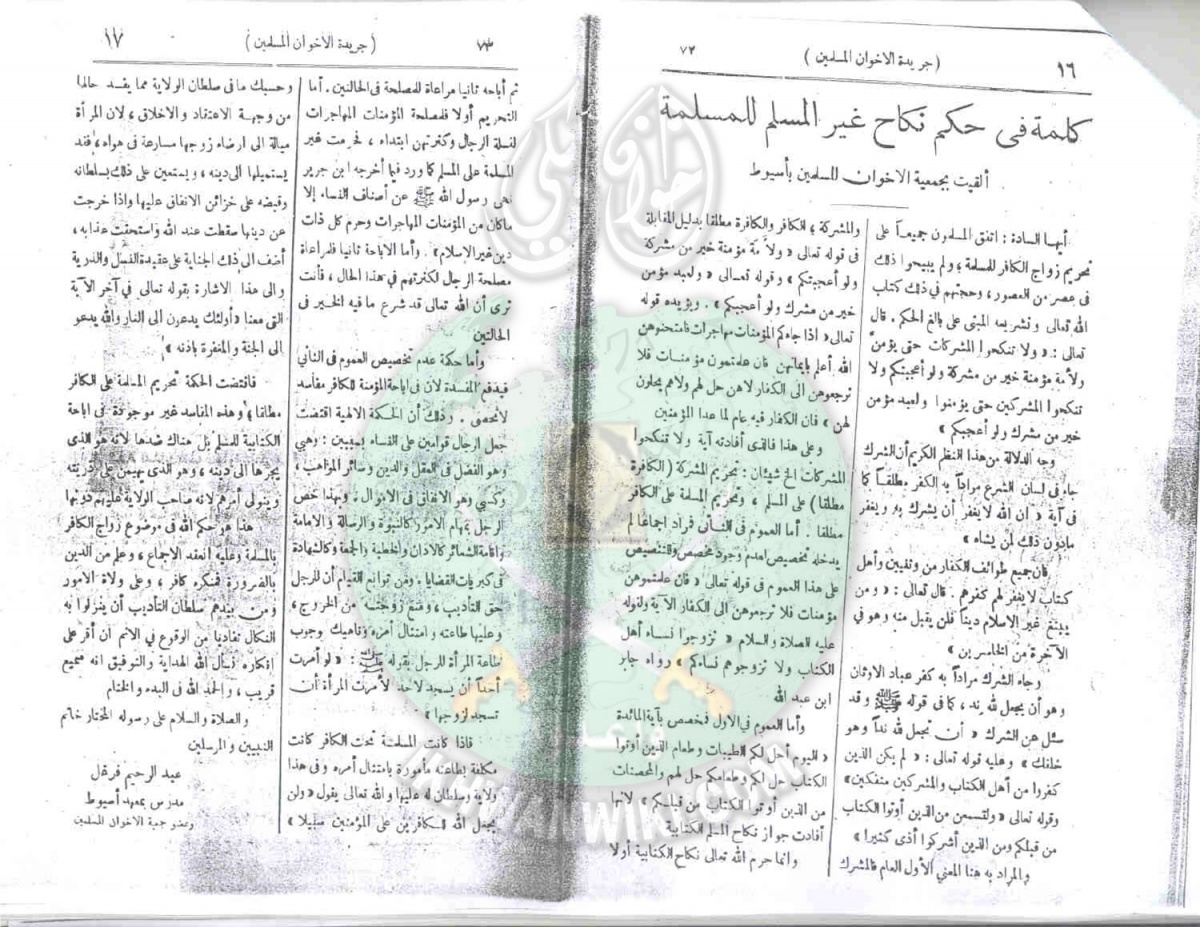 ١٦
( جريدة الاخوان المسلمين )
٧٢
كلمة فى حكم نكاح غير المسلم للمسلمة
ألقيت بجمعية الاخوان المسلمين بأسيوط
أيها السادة : اتفق المسلمون جميعاً على
تحريم زواج الكافر للمسلمة ؛ ولم يبيحوا ذلك
فى عصر من العصور ، وحجتهم فى ذلك كتاب
الله تعالى وتشريعه المبنى على بالغ الحكم . قال
تعالى : « ولا تنكحوا المشركات حتى يؤمنّ
ولأمة مؤمنة خير من مشركة ولو أعجبتكم ولا
تنكحوا المشركين حتى يؤمنوا ولعبد مؤمن
خير من مشرك ولو أعجبكم »
وجه الدلالة من هذا النظم الكريم أن الشرك
جاء فى لسان الشرع مراداً به الكفر مطلقاً كما
فى آية « ان الله لا يغفر أن يشرك به ويغفر
مادون ذلك لمن يشاء »
فان جميع طوائف الكفار من وثنيين وأهل
كتاب لا يغفر لهم كفرهم . قال تعالى : « ومن
يبتغ غير الاسلام ديناً فلن يقبل منه وهو فى
الآخرة من الخاسرين »
وجاء الشرك مراداً به كفر عباد الاوثان
وهو أن يجعل لله ند، كما فى قوله ﷺ وقد
سئل عن الشرك « أن تجعل لله نداً وهو
خلقك » وعليه قوله تعالى : « لم يكن الذين
كفروا من أهل الكتاب والمشركين منفكين »
وقوله تعالى « ولتسمعن من الذين أوتوا الكتاب
من قبلكم ومن الذين أشركوا أذى كثيرا »
والمراد به هنا المعنى الأول العام فالمشرك
والمشركة ؛ الكافر والكافرة مطلقا بدليل المقابلة
فى قوله تعالى « ولأمة مؤمنة خير من مشركة
ولو أعجبتكم » وقوله تعالى « ولعبد مؤمن
خير من مشرك ولو أعجبكم » . ويؤيده قوله
تعالى « اذا جاءكم المؤمنات مهاجرات فامتحنوهن
الله أعلم بايمانهن فان علمتموهن مؤمنات فلا
ترجعوهن الى الكفار لاهن حل لهم ولا هم يحلون
لهن » فان الكفار فيه عام لما عدا المؤمنين
وعلى هذا فالذى أفادته آية ولا تنكحوا
المشركات الخ شيئان : تحريم المشركة ( الكافرة
مطلقا ) على المسلم ، وتحريم المسلمة على الكافر
مطلقا . أما العموم فى الثانى فمراد اجماعاً لم
يدخله تخصيص لعدم وجود مخصص وللتنصيص
على هذا العموم فى قوله تعالى « فان علمتموهن
مؤمنات فلا ترجعوهن الى الكفار الآية ولقوله
عليه الصلاة والسلام « تزوجوا نساء أهل
الكتاب ولا تزوجوهم نساءكم » رواه جابر
ابن عبد الله
وأما العموم فى الاول فمخصص بآية المائدة
« اليوم أحل لكم الطيبات وطعام الذين أوتوا
الكتاب حل لكم وطعامكم حل لهم والمحصنات
من الذين أوتوا الكتاب من قبلكم » لانها
أفادت جواز نكاح المسلم الكتابية
وانما حرم الله تعالى نكاح الكتابية أولا
٧٣
( جريدة الاخوان المسلمين )
١٧
ثم أباحه ثانيا مراعاة للمصلحة فى الحالتين . أما
التحريم أولا فلمصلحة المؤمنات المهاجرات
لقلة الرجال وكثرتهن ابتداء ، فحرمت غير
المسلمة على المسلم كما ورد فيما أخرجه ابن جرير
نهى رسول الله ﷺ عن أصناف النساء إلا
ماكان من المؤمنات المهاجرات وحرم كل ذات
دين غير الاسلام » . وأما الاباحة ثانيا فلمراعاة
مصلحة الرجال لكثرتهم فى هذا الحال ، فأنت
ترى أن الله تعالى قد شرع ما فيه الخير فى
الحالتين
وأما حكمة عدم تخصيص العموم فى الثانى
فيدفع المفسدة لان فى اباحة المؤمنة للكافر مفاسد
لا تحصى . وذلك أن الحكمة الالهية اقتضت
جعل الرجال قوامين على النساء لسببين : وهبى
وهو الفضل فى العقل والدين وسائر المواهب ،
وكسبى وهو الانفاق فى الاموال ، ولهذا خص
الرجل بمهام الامور كالنبوة والرسالة والامامة
واقامة الشعائر كالاذان والخطبة والجمعة وكالشهادة
فى كبريات القضايا . ومن توابع القيام أن للرجل
حق التأديب ، ومنع زوجته من الخروج ،
وعليها طاعته وامتثال أمره وناهيك وجوب
طاعة المرأة للرجل بقوله ﷺ : « لو أمرت
أحداً أن يسجد لاحد لأمرت المرأة أن
تسجد لزوجها »
فاذا كانت المسلمة تحت الكافر كانت
مكلفة بطاعته مأمورة بامتثال أمره وفى هذا
ولاية وسلطان له عليها والله تعالى يقول « ولن
يجعل الله للكافرين على المؤمنين سبيلا »
وحسبك ما فى سلطان الولاية مما يفسد حالها
من وجهة الاعتقاد والاخلاق ، لان المرأة
ميالة الى ارضاء زوجها مسارعة فى هواه ، فقد
يستميلها الى دينه ، ويستعين على ذلك بسلطانه
وقبضه على خزائن الانفاق عليها واذا خرجت
عن دينها سقطت عند الله واستحقت عذابه ،
أضف الى ذلك الجناية على عقيدة النسل والذرية
والى هذا الاشارة بقوله تعالى فى آخر الآية
التى معنا « أولئك يدعون الى النار والله يدعو
الى الجنة والمغفرة باذنه »
فاقتضت الحكمة تحريم المسلمة على الكافر
مطلقا ؛ وهذه المفاسد غير موجودة فى اباحة
الكتابية للمسلم بل هناك ضدها لانه هو الذى
يجرها الى دينه ، وهو الذى يهيمن على ذريته
ويتولى أمرهم لانه صاحب الولاية عليهم دونها
هذا هو حكم الله فى موضوع زواج الكافر
بالمسلمة وعليه انعقد الاجماع ، وعلم من الدين
بالضرورة فمنكره كافر ، وعلى ولاة الامور
ومن بيدهم سلطان التأديب أن ينزلوا به
النكال تفاديا من الوقوع فى الاثم ان أقر على
انكاره نسأل الله الهداية والتوفيق انه سميع
قريب ، والحمد لله فى البدء والختام
والصلاة والسلام على رسوله المختار خاتم
النبيين والمرسلين
عبد الرحيم فرغل
مدرس بمعهد أسيوط
وعضو جمعية الاخوان المسلمين
إخوان ويكي
وأعدوا
IKHWANWIKI.COM